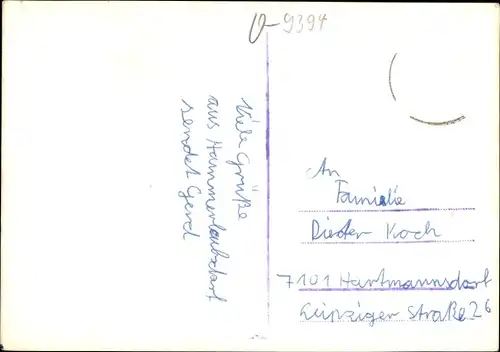 O-9394
Viele Grüße
aus Hammerleubsdorf
sendet Gerd
An
Familie
Dieter Koch
7101 Hartmannsdorf
Leipziger Straße 26